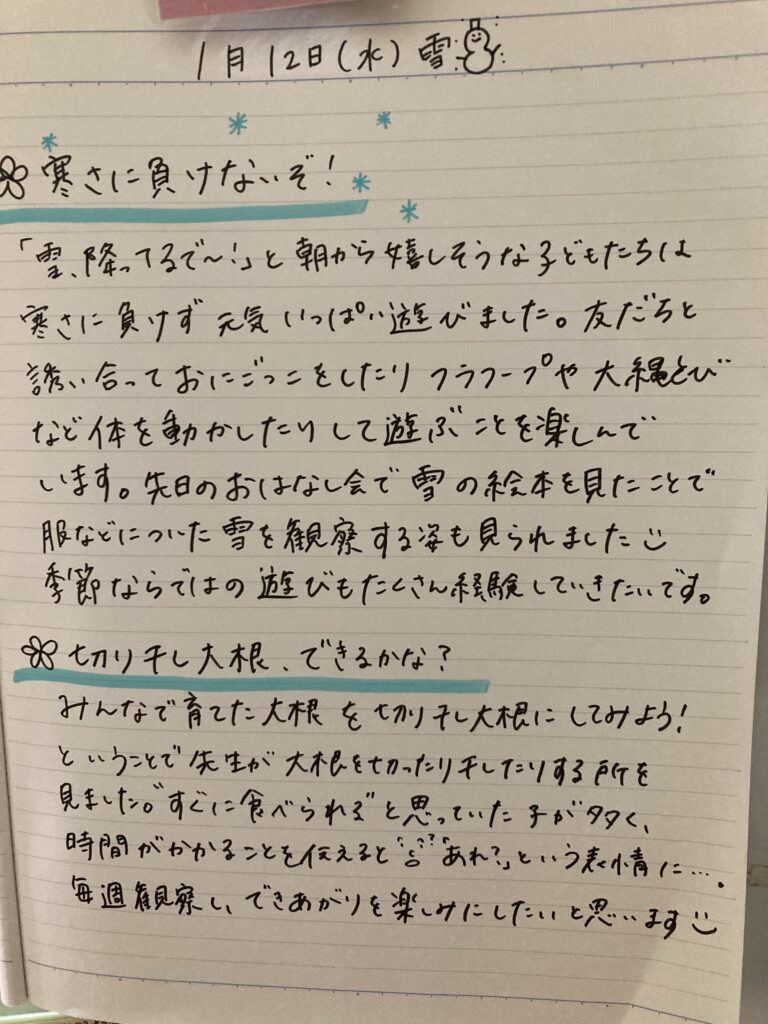 1月12日(水) 雪
寒さに負けないぞ!
「雪、降ってるで〜!」と朝から嬉しそうな子どもたちは
寒さに負けず元気いっぱい遊びました。友だちと
誘い合っておにごっこをしたりフラフープや大縄とび
など体を動かしたりして遊ぶことを楽しんで
います。先日のおはなし会で雪の絵本を見たことで
服などについた雪を観察する姿も見られました
季節ならではの遊びもたくさん経験していきたいです。
切り干し大根、できるかな?
みんなで育てた大根を切り干し大根にしてみよう!
ということで先生が大根を切ったり干したりする所を
見ました。"すぐに食べられる"と思っていた子が多く、
時間がかかることを伝えると「あれ?」という表情に…。
毎週観察し、できあがりを楽しみにしたいと思います